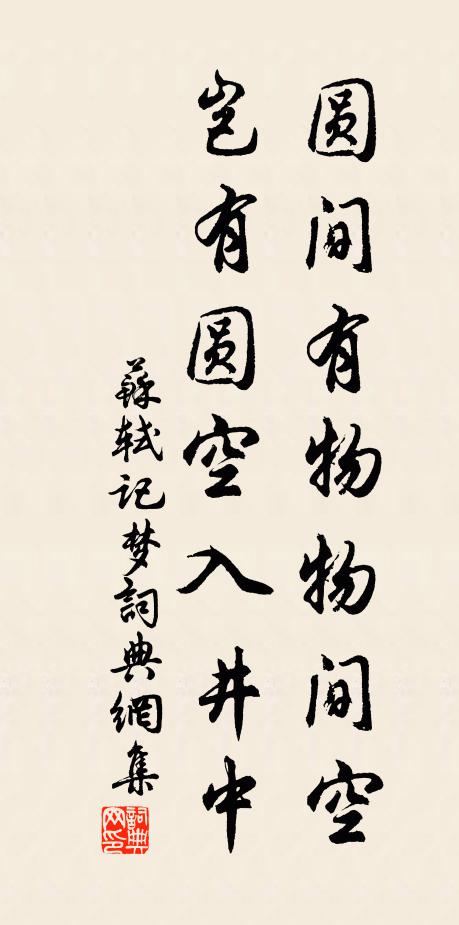 圆间有物物间空
岂有圆空入井中
蘇轼记梦詞典網集
詞典网印